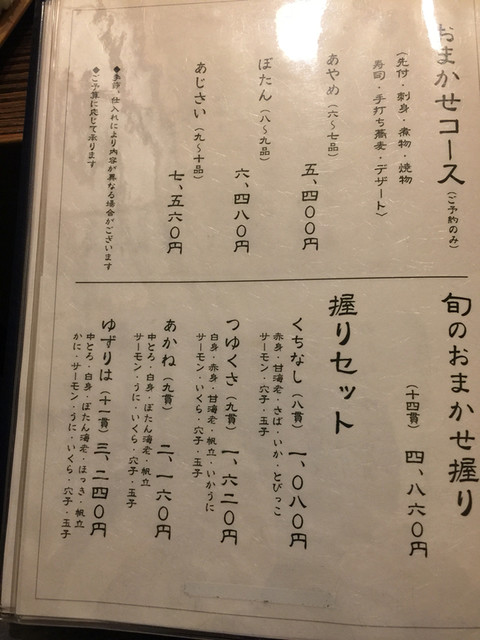 おまかせコース（ご予約のみ）
（先付・刺身・煮物・焼物
寿司・手打ち蕎麦・デザート）
あやめ（六〜七品）
五、四〇〇円
ぼたん（八〜九品）
六、四八〇円
あじさい（九〜十品）
七、五六〇円
◆季節、仕入れにより内容が異なる場合がございます
◆ご予算に応じて承ります
旬のおまかせ握り
（十四貫） 四、八六〇円
握りセット
くちなし（八貫） 一、〇八〇円
赤身・甘海老・さば・いか・とびっこ
サーモン・穴子・玉子
つゆくさ（九貫） 一、六二〇円
白身・赤身・甘海老・帆立・いかうに
サーモン・いくら・穴子・玉子
あかね（九貫） 二、一六〇円
中とろ・白身・ぼたん海老・帆立
サーモン・うに・いくら・穴子・玉子
ゆずりは（十一貫） 三、二四〇円
中とろ・白身・ぼたん海老・ほっき・帆立
かに・サーモン・うに・いくら・穴子・玉子